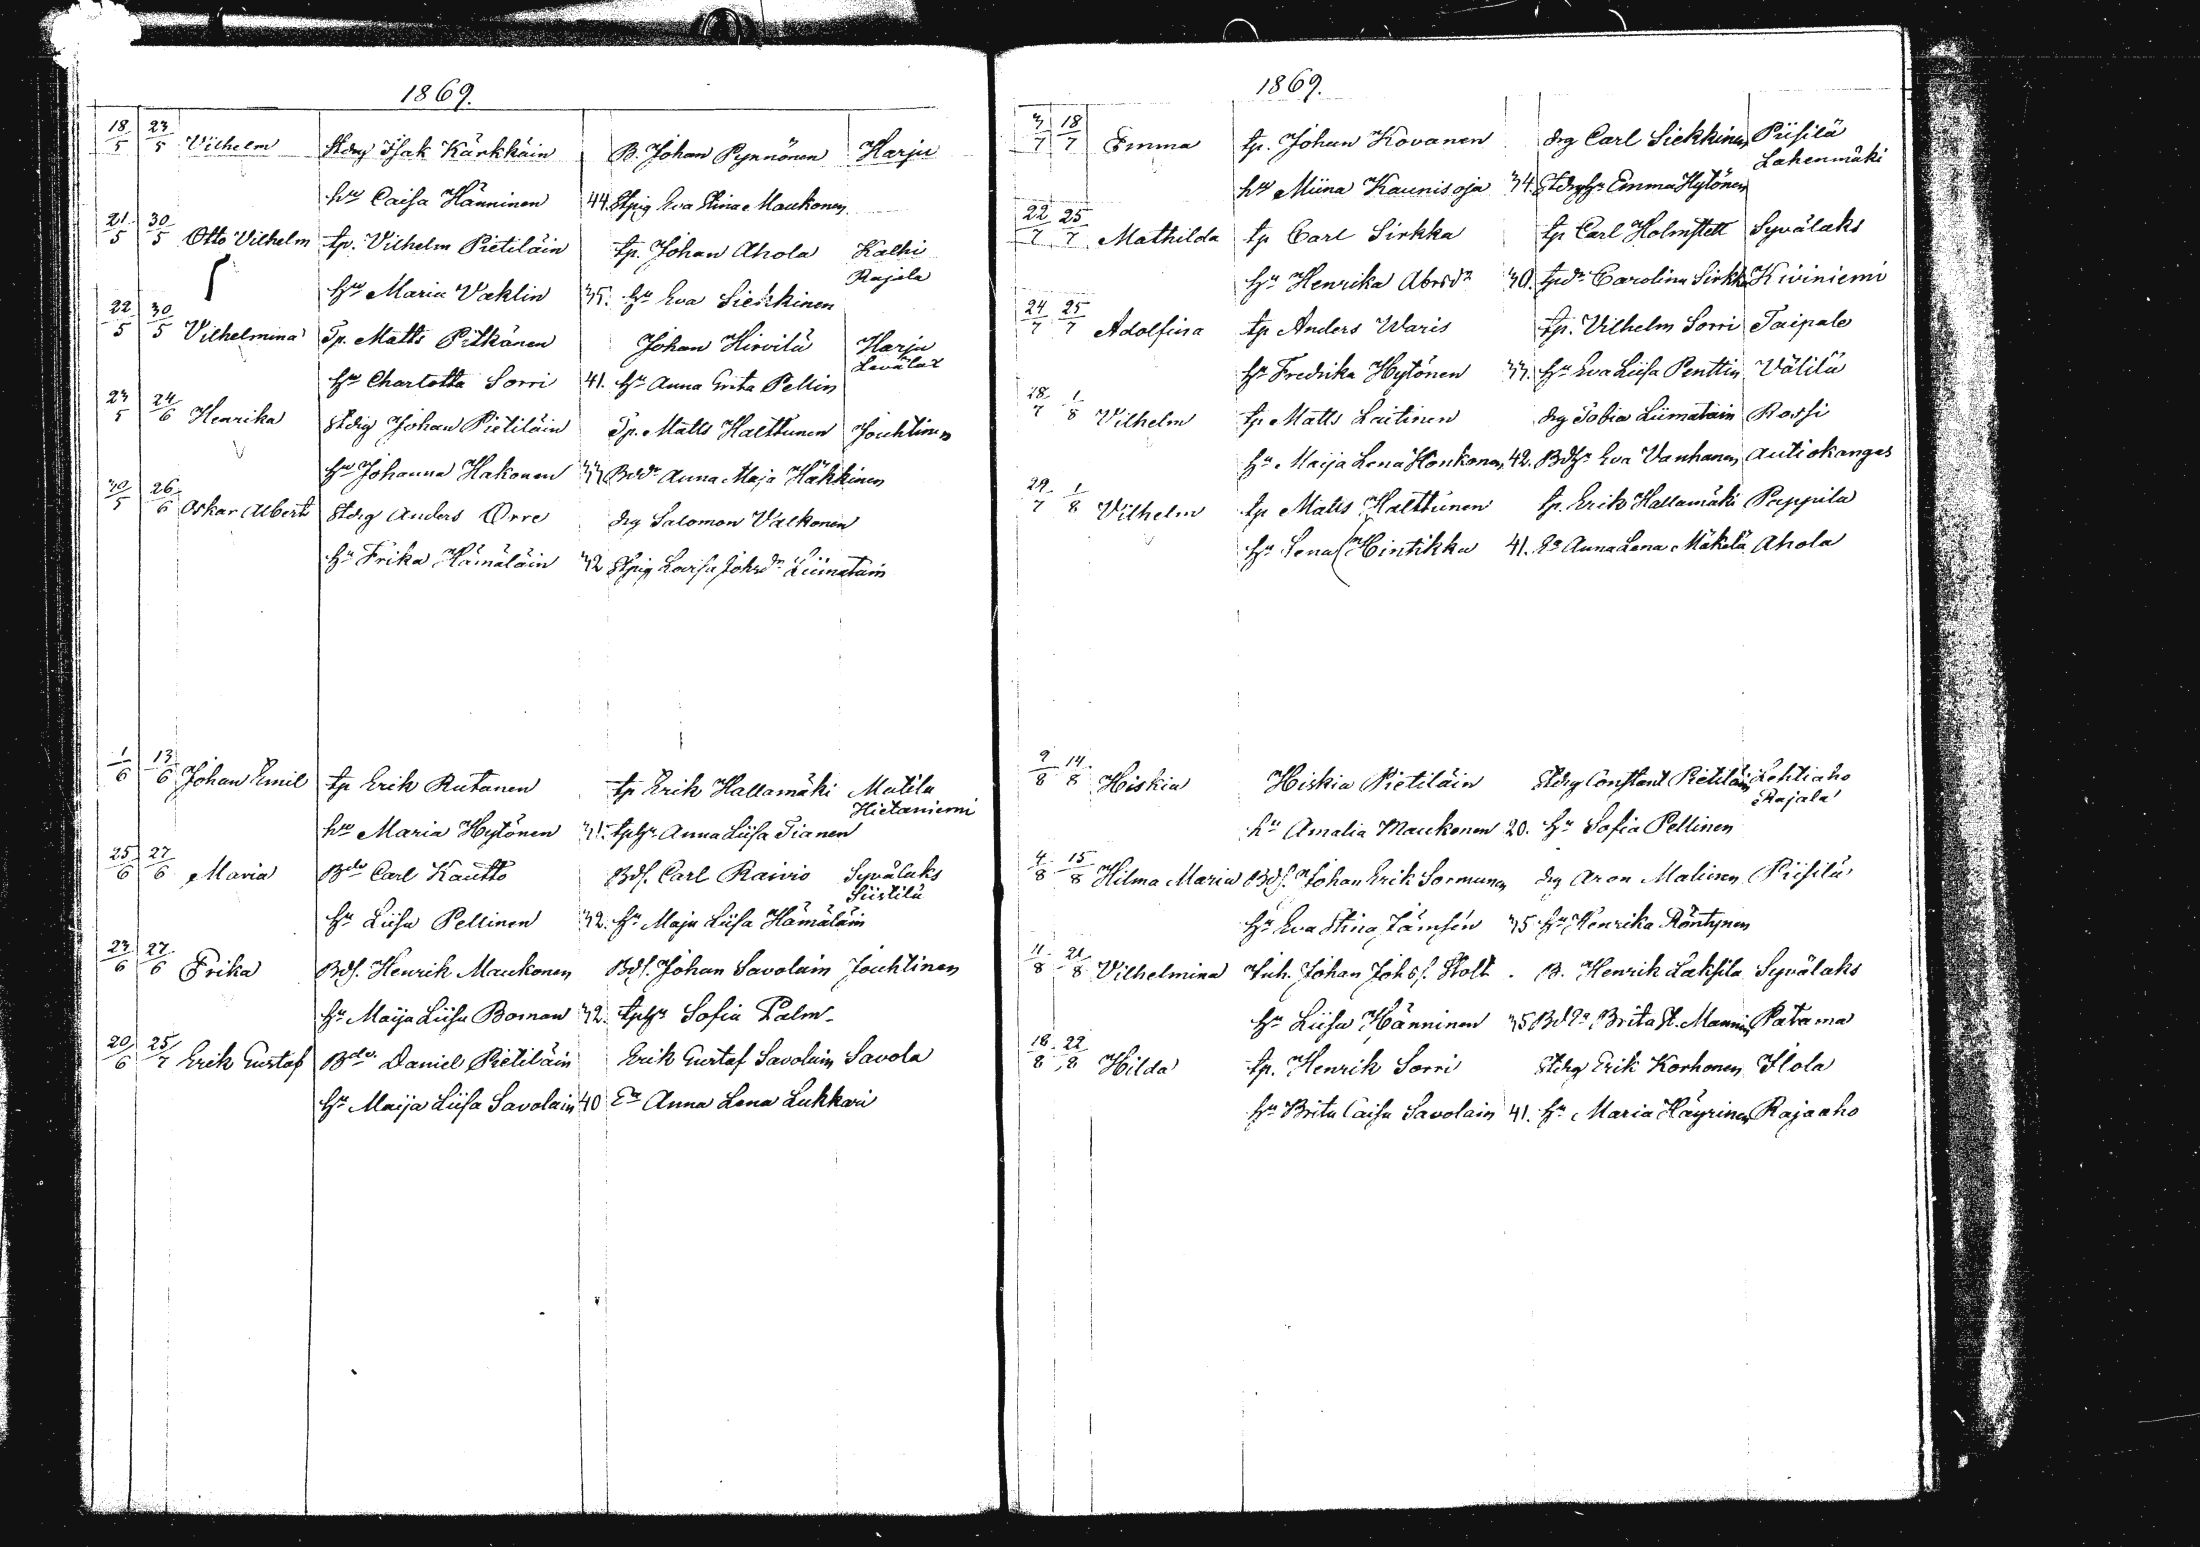 1869.
18/5 23/5 Vilhelm Stdrg Isak Kärkkäin B. Johan Pynnönen Harju
hu Caisa Hänninen 44. Stpig Eva Stina Maukonen
21/5 30/5 Otto Vilhelm tp. Vilhelm Pietiläin tp. Johan Ahola Kalhi
Rajala
hu Maria Vaklin 35. hu Eva Siekkinen
22/5 30/5 Vilhelmina Tp. Matts Pitkänen Johan Hirvilä Harju
Levälax
hu Charlotta Sorri 41. hu Anna Grita Pellin
23/5 24/6 Henrika Stdrg Johan Pietiläin Tp. Matts Halttunen Jouhtinen
hu Johanna Hakonen 33 Bdr Anna Maja Häkkinen
30/5 26/6 Oskar Albert Stdrg Anders Orre drg Salomon Valkonen
hu Frika Hämäläin 32 Stpig Lovisa Johsdr Liimatain
1/6 13/6 Johan Emil tp Erik Rutanen tp Erik Hallamäki Matila
Hietaniemi
hu Maria Hytönen 31. tphu Anna Liisa Tianen
25/6 27/6 Maria Bde Carl Kautto Bds. Carl Raivio Syvälaks
Siistilä
hu Liisa Pellinen 32. hu Maja Liisa Hämäläin
23/6 27/6 Frika Bds. Henrik Maukonen Bds. Johan Savolain Jouhtinen
hu Maija Liisa Boman 32. tphu Sofia Palm
20/6 25/7 Erik Gustaf Bde Daniel Pietiläin Erik Gustaf Savolain Savola
hu Maija Liisa Savolain 40 Ea Anna Lena Lukkari
1869.
3/7 18/7 Emma tp. Johan Kovanen drg Carl Siekkinen Piisilä
Lahenmäki
hu Miina Kaunisoja 34. Stdrghu Emma Hytönen
22/7 25/7 Mathilda tp Carl Sirkka tp Carl Holmstett Syvälaks
hu Henrika Abrsdr 30. tpdr Carolina Sirkka Kiviniemi
24/7 25/7 Adolfina tp Anders Waris tp. Vilhelm Sorri Taipale
hu Fredrika Hytönen 33. hu Eva Liisa Penttin Välilä
28/7 1/8 Vilhelm tp Matts Laitinen drg Tobias Liimatain Rossi
hu Maija Lena Honkonen 42. Bdhu Eva Vanhanen Autiokangas
29/7 1/8 Vilhelm tp Matts Halttunen tp. Erik Hallamäki Pappila
hu Lena Hintikka 41. Ea Anna Lena Mäkelä Ahola
2/8 14/8 Hiskia Hiskia Pietiläin Stdrg Constant Pietiläin Lehtiaho
Rajala
hu Amalia Maukonen 20. hu Sofia Pellinen
4/8 15/8 Hilma Maria Bds. Johan Erik Sormunen drg Aron Malinen Piisilä
hu Eva Stina Jämsén 35 hu Henrika Röntynen
11/8 21/8 Vilhelmina Inh. Johan Johss. Stolt. B. Henrik Laksila Syvälaks
hu Liisa Hänninen 35 Bddr Brita St. Mannin Patama
18/8 22/8 Hilda tp. Henrik Sorri Stdrg Erik Korhonen Ilola
hu Brita Caisa Savolain 41. hu Maria Häyrinen Rajaaho